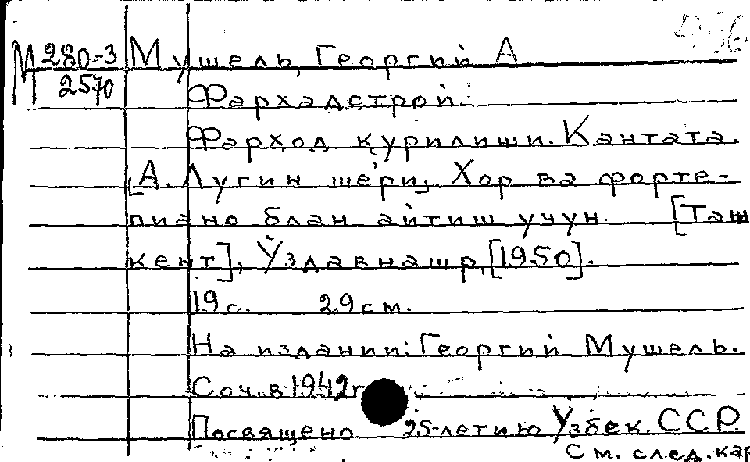 М 280-3 Мушель, Георгий А
2570
Фархадстрой.
Фарҳод қурилиши. Кантата.
[А. Лугин шеъри]. Хор ва форте-
пиано блан айтиш учун. [Таш
кент], Ўздавнашр, [1950].
19 с. 29 см.
На издании: Георгий Мушель.
Соч. в 1942 г
Посвящено 25-летию Узбек. ССР.
См. след. кар